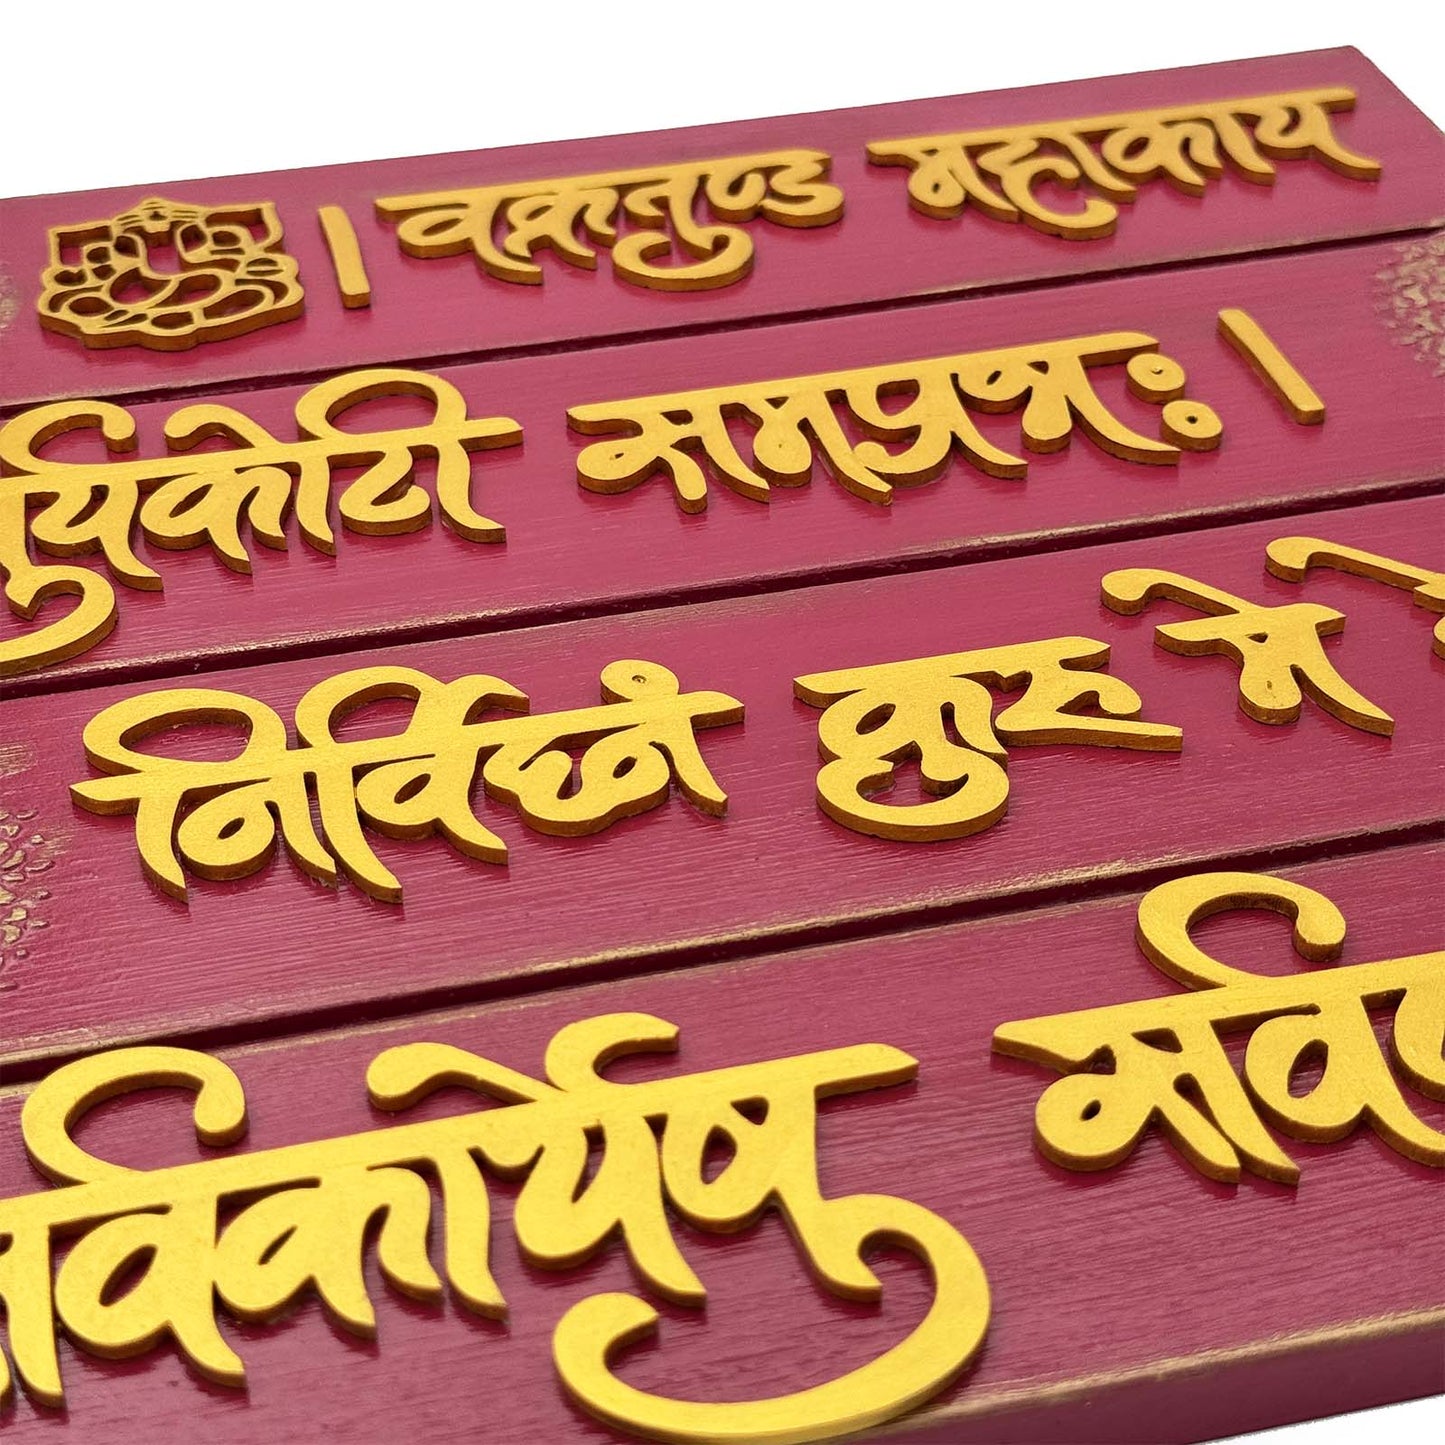 । वक्रतुण्ड महाकाय
सूर्यकोटी समप्रभः ।
निर्विघ्नं कुरु मे
सर्वकार्येषु